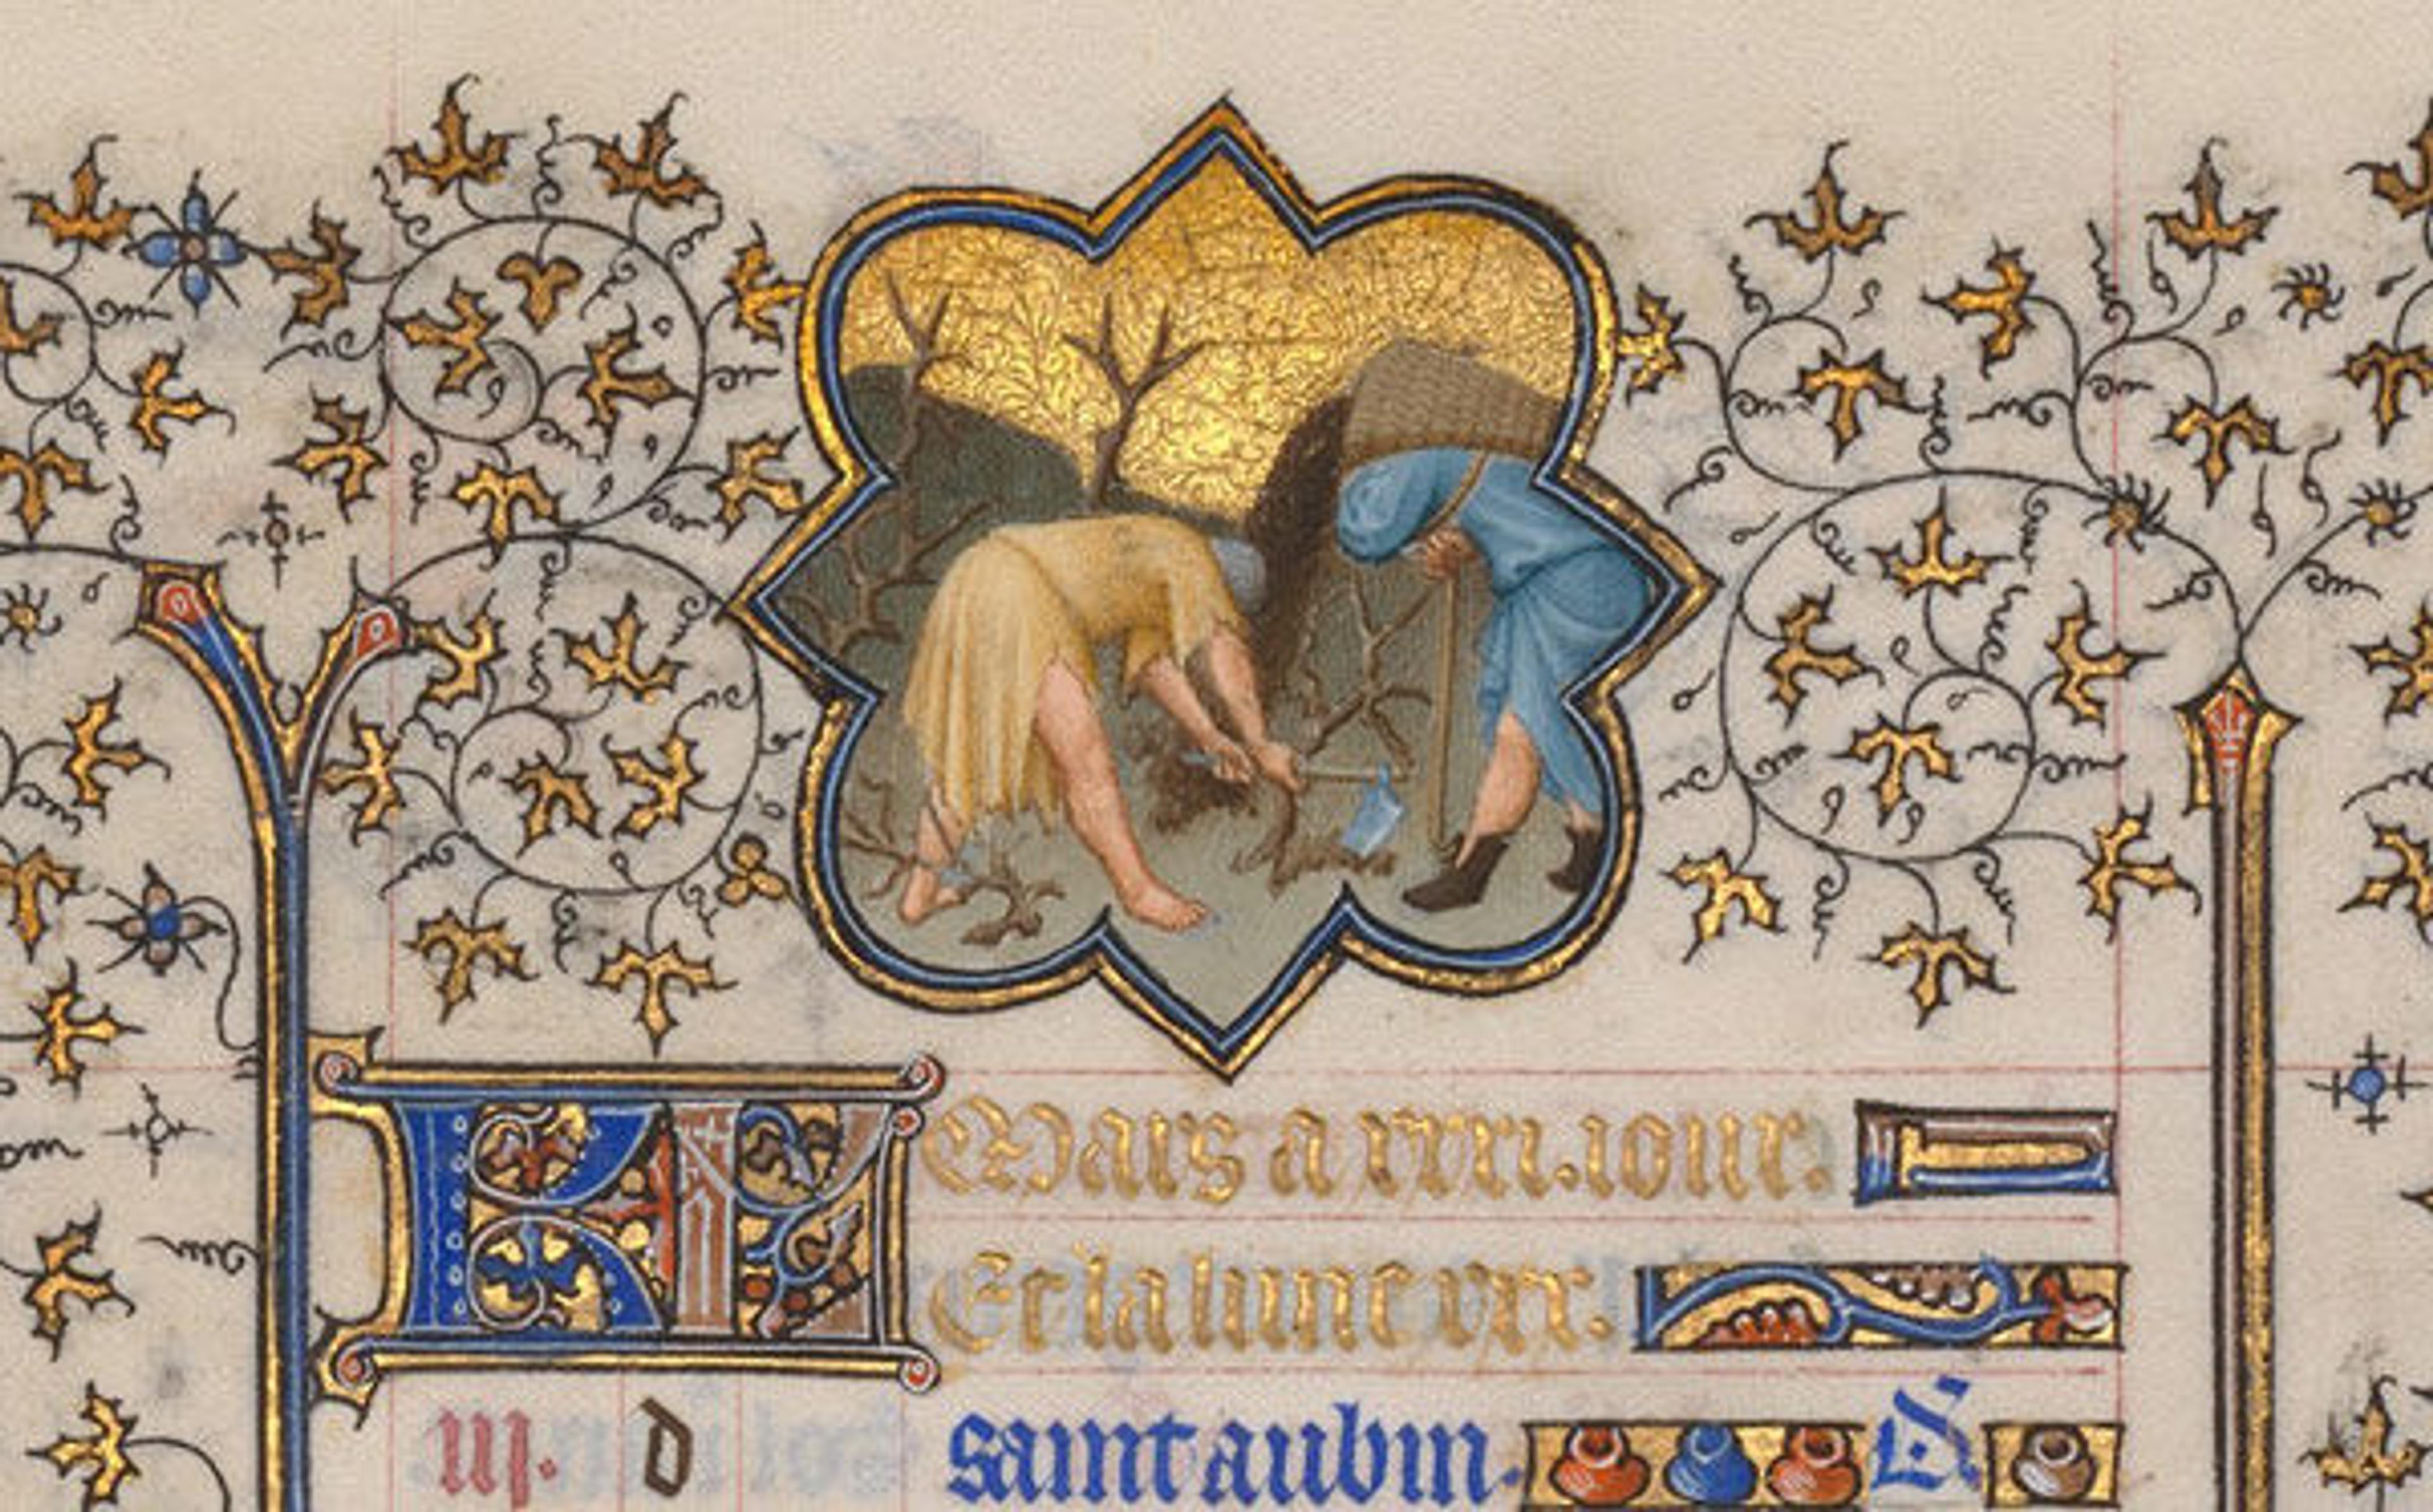 KL Mars a xxxi. iour.
Et la lune xxx.
iii. d saint aubin. S